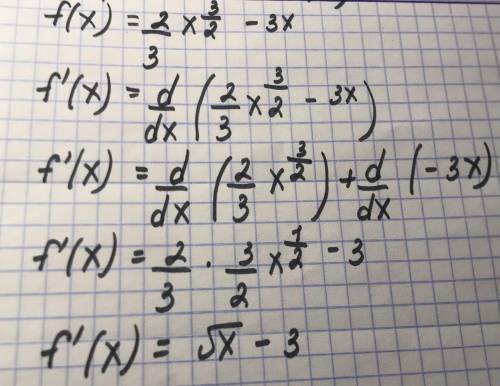 f(x) = 2/3 x^(3/2) - 3x
f'(x) = d/dx (2/3 x^(3/2) - 3x)
f'(x) = d/dx (2/3 x^(3/2)) + d/dx (-3x)
f'(x) = 2/3 · 3/2 x^(1/2) - 3
f'(x) = √x - 3